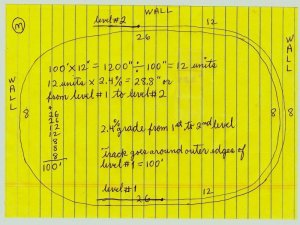 WALL
level #2 12
M 26
100' x 12" = 1200" ÷ 100" = 12 units
12 units x 2.4% = 28.8" or
from level #1 to level #2
WALL
WALL
8
8
8
26
26
12
12
8
8
8
100'
2.4% grade from 1st to 2nd level
Track goes around outer edges of
level #1 = 100'
level #1 12
26